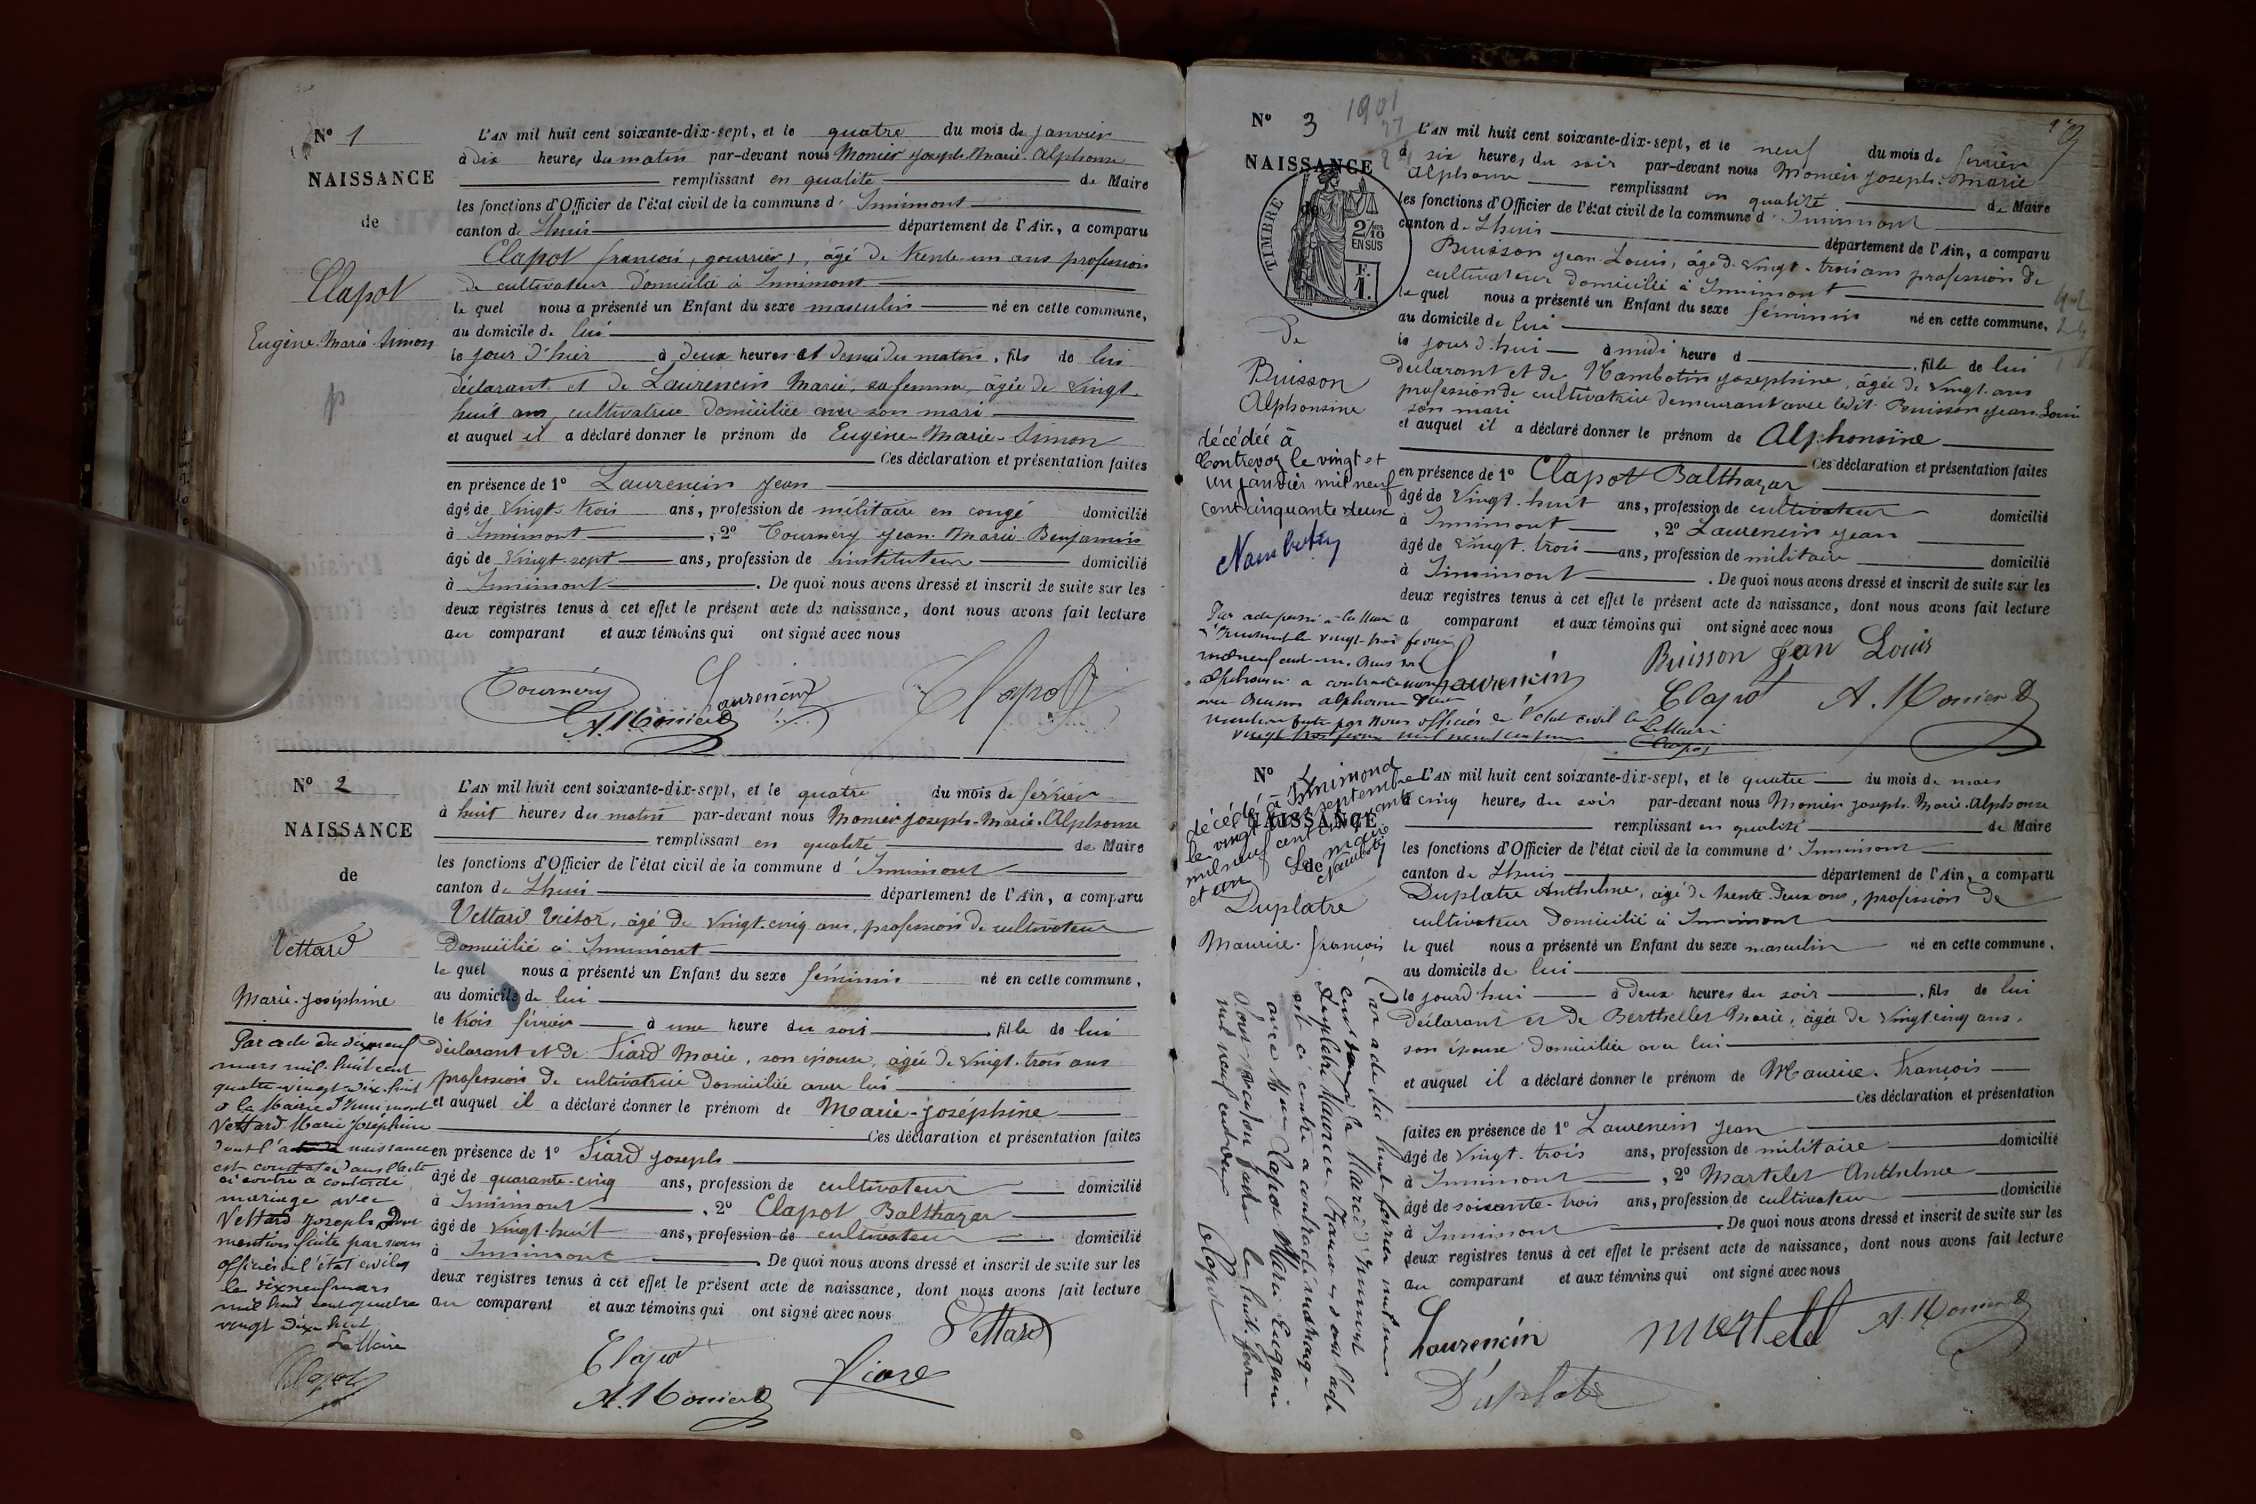 N° 1
NAISSANCE
de
Clapot
Eugène-Marie-Simon
L'AN mil huit cent soixante-dix-sept, et le quatre du mois de janvier
à dix heures du matin par-devant nous Monier Joseph-Marie-Alphonse
remplissant en qualité de Maire
les fonctions d'Officier de l'état civil de la commune d' Innimont
canton de Lhuis département de l'Ain, a comparu
Clapot françois, âgé de trente-un ans profession
de cultivateur domicilié à Innimont
le quel nous a présenté un Enfant du sexe masculin né en cette commune,
au domicile de lui
le jour d'hier à deux heures et demie du matin, fils de lui
déclarant et de Laurencin Marie, sa femme, âgée de vingt-
huit ans, cultivatrice domiciliée avec son mari
et auquel il a déclaré donner le prénom de Eugène-Marie-Simon
Ces déclaration et présentation faites
en présence de 1° Laurencin Jean
âgé de vingt-trois ans, profession de militaire en congé domicilié
à Innimont, 2° Tournéry Jean-Marie-Benjamin
âgé de vingt-sept ans, profession de instituteur domicilié
à Innimont. De quoi nous avons dressé et inscrit de suite sur les
deux registres tenus à cet effet le présent acte de naissance, dont nous avons fait lecture
au comparant et aux témoins qui ont signé avec nous
Tournéry Laurencin Clapot
A. Monier
N° 2
NAISSANCE
de
Vettard
Marie-Joséphine
Par acte du dix neuf
mars mil huit cent
quatre-vingt-dix-huit
à la Mairie d'Innimont
Vettard Marie Joséphine
dont l'acte de naissance
est constatée dans l'acte
ci contre a contracté
mariage avec
Vettard Joseph Dont
mention faite par nous
officier de l'état civil
le dix neuf mars
mil huit cent quatre
vingt dix huit
Le Maire
Clapot
L'AN mil huit cent soixante-dix-sept, et le quatre du mois de février
à huit heures du matin par-devant nous Monier Joseph-Marie-Alphonse
remplissant en qualité de Maire
les fonctions d'Officier de l'état civil de la commune d' Innimont
canton de Lhuis département de l'Ain, a comparu
Vettard Victor, âgé de vingt-cinq ans, profession de cultivateur
domicilié à Innimont
le quel nous a présenté un Enfant du sexe féminin né en cette commune,
au domicile de lui
le trois février à une heure du soir fille de lui
déclarant et de Siard Marie, son épouse, âgée de vingt-trois ans
profession de cultivatrice domiciliée avec lui
et auquel il a déclaré donner le prénom de Marie-Joséphine
Ces déclaration et présentation faites
en présence de 1° Siard Joseph
âgé de quarante-cinq ans, profession de cultivateur domicilié
à Innimont, 2° Clapot Balthazar
âgé de vingt-huit ans, profession de cultivateur domicilié
à Innimont De quoi nous avons dressé et inscrit de suite sur les
deux registres tenus à cet effet le présent acte de naissance, dont nous avons fait lecture
au comparant et aux témoins qui ont signé avec nous
Clapot Vettard
A. Monier Siard
N° 3
1901
NAISSANCE
TIMBRE
2/10
EN SUS
F.
1.
De
Buisson
Alphonsine
décédée à
Contrevoz le vingt et
un janvier mil neuf
cent cinquante deux
Nambotin
Par acte passé à la Mairie
d'Innimont le vingt-trois février
mil neuf cent un, Buisson
Alphonsine a contracté mariage
avec Buisson Alphonse Dont
mention faite par Nous officier de l'état civil le
vingt trois février mil neuf cent un
Le Maire
Clapot
L'AN mil huit cent soixante-dix-sept, et le neuf du mois de février
à six heures du soir par-devant nous Monier Joseph-Marie
Alphonse remplissant en qualité de Maire
les fonctions d'Officier de l'état civil de la commune d' Innimont
canton de Lhuis département de l'Ain, a comparu
Buisson Jean-Louis, âgé de vingt-trois ans profession de
cultivateur domicilié à Innimont
le quel nous a présenté un Enfant du sexe féminin né en cette commune,
au domicile de lui
le jour d'hui à midi heure d fille de lui
déclarant et de Nambotin Joséphine, âgée de vingt ans
profession de cultivatrice demeurant avec ledit Buisson Jean-Louis
son mari
et auquel il a déclaré donner le prénom de Alphonsine
Ces déclaration et présentation faites
en présence de 1° Clapot Balthazar
âgé de vingt-huit ans, profession de cultivateur domicilié
à Innimont, 2° Laurencin Jean
âgé de vingt-trois ans, profession de militaire domicilié
à Innimont. De quoi nous avons dressé et inscrit de suite sur les
deux registres tenus à cet effet le présent acte de naissance, dont nous avons fait lecture
a comparant et aux témoins qui ont signé avec nous
Laurencin Buisson Jean Louis
Clapot A. Monier
N° 4
NAISSANCE
de
décédé à Innimond
le vingt septembre
mil neuf cent cinquante
et un Le maire
Nambotin
Duplatre
Maurice-françois
Par acte du huit février mil neuf
cent à la Mairie d'Innimont
Duplatre Maurice-François dont l'acte
est ci contre a contracté mariage
avec Mlle Clapot Marie Eugénie
Dont mention faite le huit février
mil neuf cent Clapot
L'AN mil huit cent soixante-dix-sept, et le quatre du mois de mars
à cinq heures du soir par-devant nous Monier Joseph-Marie-Alphonse
remplissant en qualité de Maire
les fonctions d'Officier de l'état civil de la commune d' Innimont
canton de Lhuis département de l'Ain, a comparu
Duplatre Anthelme, âgé de trente-deux ans, profession de
cultivateur domicilié à Innimont
le quel nous a présenté un Enfant du sexe masculin né en cette commune,
au domicile de lui
le jourd'hui à deux heures du soir, fils de lui
déclarant et de Berthellet Marie, âgée de vingt-cinq ans,
son épouse domiciliée avec lui
et auquel il a déclaré donner le prénom de Maurice-François
Ces déclaration et présentation
faites en présence de 1° Laurencin Jean
âgé de vingt-trois ans, profession de militaire domicilié
à Innimont, 2° Martelet Anthelme
âgé de soixante-trois ans, profession de cultivateur domicilié
à Innimont. De quoi nous avons dressé et inscrit de suite sur les
deux registres tenus à cet effet le présent acte de naissance, dont nous avons fait lecture
au comparant et aux témoins qui ont signé avec nous
Laurencin Martelet A. Monier
Duplatre